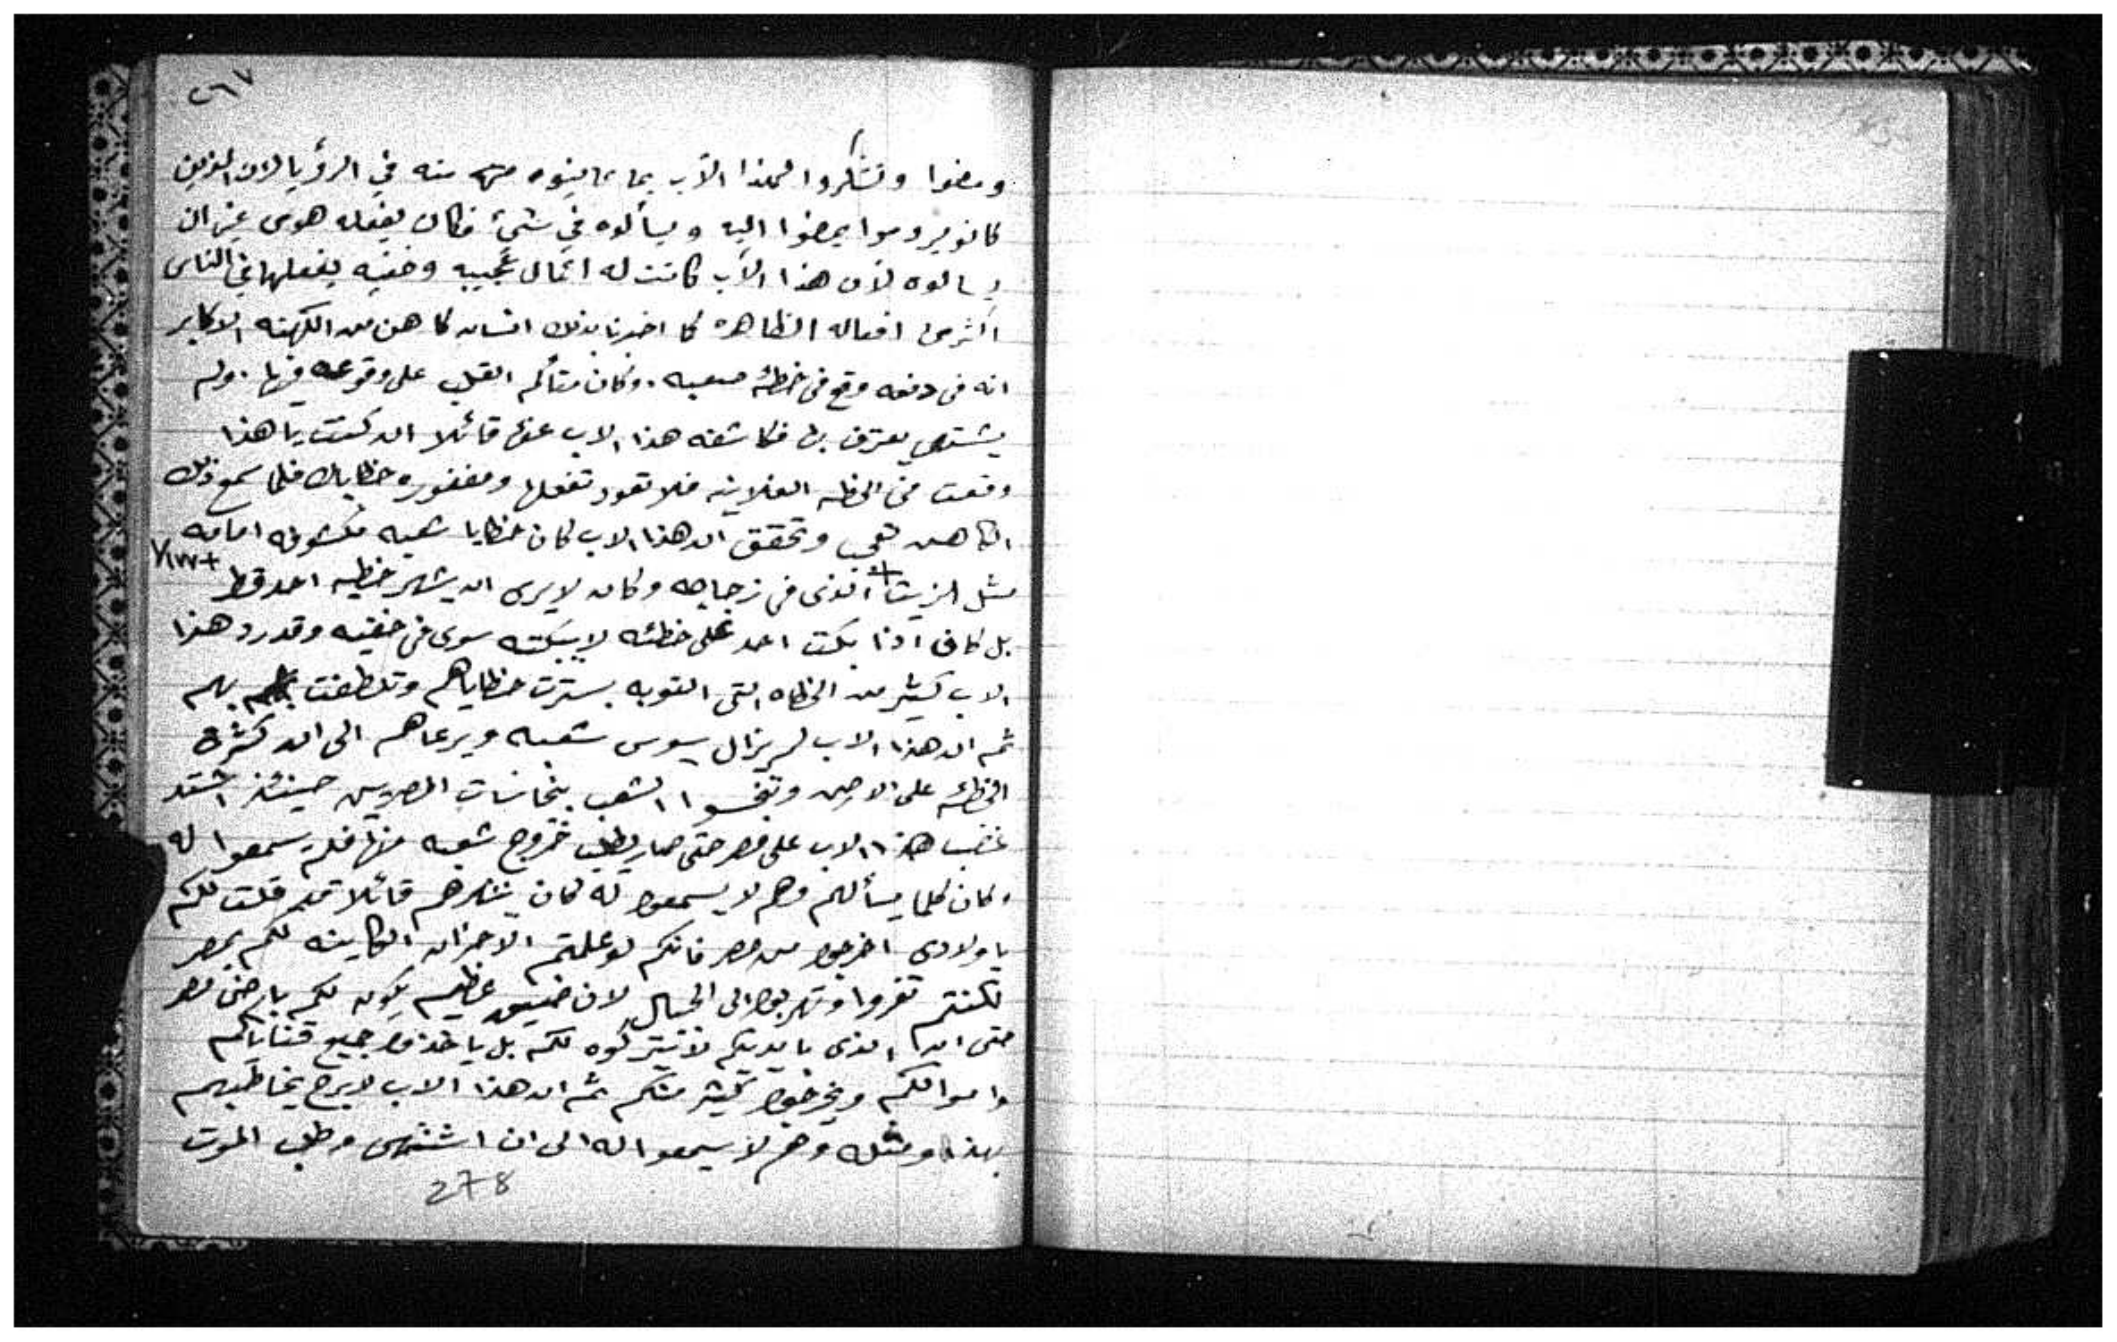 ٢٦٧
ومضوا وتشكروا لهذا الاب بما عاينوه منه في الرؤيا لان الذين
كانو يروموا يمضوا اليه ويسألوه في شيئ فكان يفعله هوى عن ان
يسالوه لأن هذا الأب كانت له اعمال عجيبه وخفيه يفعلها في الناس
اكثر من افعاله الظاهره كما اخبرنا بذلك انسان كاهن من الكهنه الاكابر
انه فى دفعه وقع فى خطئه صعبه. وكان متألم القلب على وقوعه فيها. ولم
يشتهي يعترف بها فكاشفه هذا الاب عنها قائلا ان كنت يا هذا
وقعت فى الخطه الفلانيه فلا تعود تفعلها ومغفوره خطاياك فلما سمع ذلك
الكاهن تعجب وتحقق ان هذا الاب كان خطايا شعبه مكشوفه امامه
مثل الزيت الذى فى زجاجه وكان لا يرى ان يشهر خطيه احد قط
بل كان اذا بكت احد على خطئه لا يبكته سوى فى خفيه وقد رد هذا
الاب كثير من الخطاه الى التوبه بسترت خطاياهم وتلطفت بهم
ثم ان هذا الاب لم يزال يسوس شعبه ويرعاهم الى ان كثرة
الخطئه على الارض وتنجسوا الشعب بنجاسات المصريين حينئذ اشتد
غضب هذا الاب على مصر حتى صار يطلب خروج شعبه منها فلم يسمعوا له
وكان كلما يسألهم وهم لا يسمعوا له كان ينذرهم قائلا قد قلت لكم
يا ولادى اخرجوا من مصر فانكم لو علمتم الاحزان الكاينه لكم بمصر
لكنتم تفروا وتهربوا الى الجبال لان ضيق عظيم يكون لكم بارض مصر
حتى ان الذى بايديكم لا تتركوه لكم بل ياخذوا جميع قناياكم
واموالكم ويخرجوا كثير منكم ثم ان هذا الاب لا يبرح يخاطبهم
بهذا ومثله وهم لا يسمعوا له الى ان اشتهى وطلب الموت
278